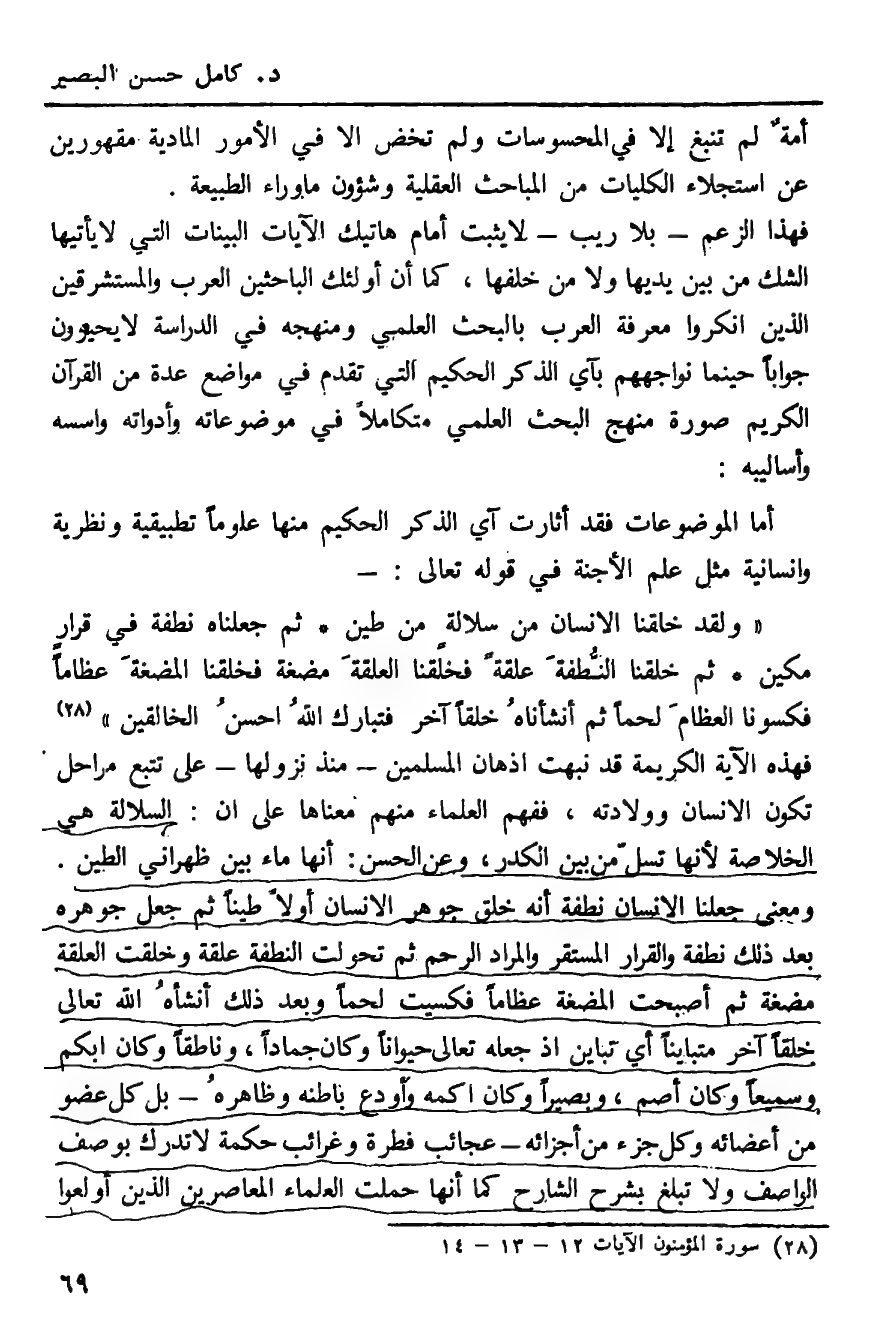 د. كامل حسن البصير
أمة ٌ لم تنبغ إلا في المحسوسات ولم تخض الا في الأمور المادية مقهورين
عن استجلاء الكليات من المباحث العقلية وشؤون ماوراء الطبيعة .
فهذا الزعم – بلا ريب – لايثبت أمام هاتيك الآيات البينات التي لايأتيها
الشك من بين يديها ولا من خلفها ، كما أن أولئك الباحثين العرب والمستشرقين
الذين انكروا معرفة العرب بالبحث العلمي ومنهجه في الدراسة لايحيرون
جواباً حينما نواجههم بآي الذكر الحكيم التي تقدم في مواضع عدة من القرآن
الكريم صورة منهج البحث العلمي متكاملاً في موضوعاته وأدواته واسسه
وأساليبه :
أما الموضوعات فقد أثارت آي الذكر الحكيم منها علوماً تطبيقية ونظرية
وانسانية مثل علم الأجنة في قوله تعالى : –
« ولقد خلقنا الانسان من سلالةٍ من طين * ثم جعلناه نطفة في قرارٍ
مكين * ثم خلقنا النُّطفةَ علقةً فخلقنا العلقةَ مضغة فخلقنا المضغةَ عظاماً
فكسونا العظامَ لحماً ثم أنشأناهُ خلقاً آخر فتبارك اللهُ احسنُ الخالقين » (٢٨)
فهذه الآية الكريمة قد نبهت اذهان المسلمين – منذ نزولها – على تتبع مراحل
تكون الانسان وولادته ، ففهم العلماء منهم معناها على ان : السلالة هي
الخلاصة لأنها تسلّ من بين الكدر ، وعن الحسن : أنها ماء بين ظهراني الطين .
ومعنى جعلنا الانسان نطفة أنه خلق جوهر الانسان أولاً طيناً ثم جعل جوهره
بعد ذلك نطفة والقرار المستقر والمراد الرحم ثم تحولت النطفة علقة وخلقت العلقة
مضغة ثم أصبحت المضغة عظاماً فكسيت لحماً وبعد ذلك أنشأهُ الله تعالى
خلقاً آخر متبايناً أي تباين اذ جعله تعالى حيواناً وكان جماداً ، وناطقاً وكان ابكم
وسميعاً وكان أصم ، وبصيراً وكان اكمه وأودع باطنه وظاهرهُ – بل كل عضو
من أعضائه وكل جزء من أجزائه – عجائب فطرة وغرائب حكمة لاتدرك بوصف
الواصف ولا تبلغ بشرح الشارح كما أنها حملت العلماء المعاصرين الذين أولعوا
(٢٨) سورة المؤمنون الآيات ١٢ – ١٣ – ١٤
٦٩